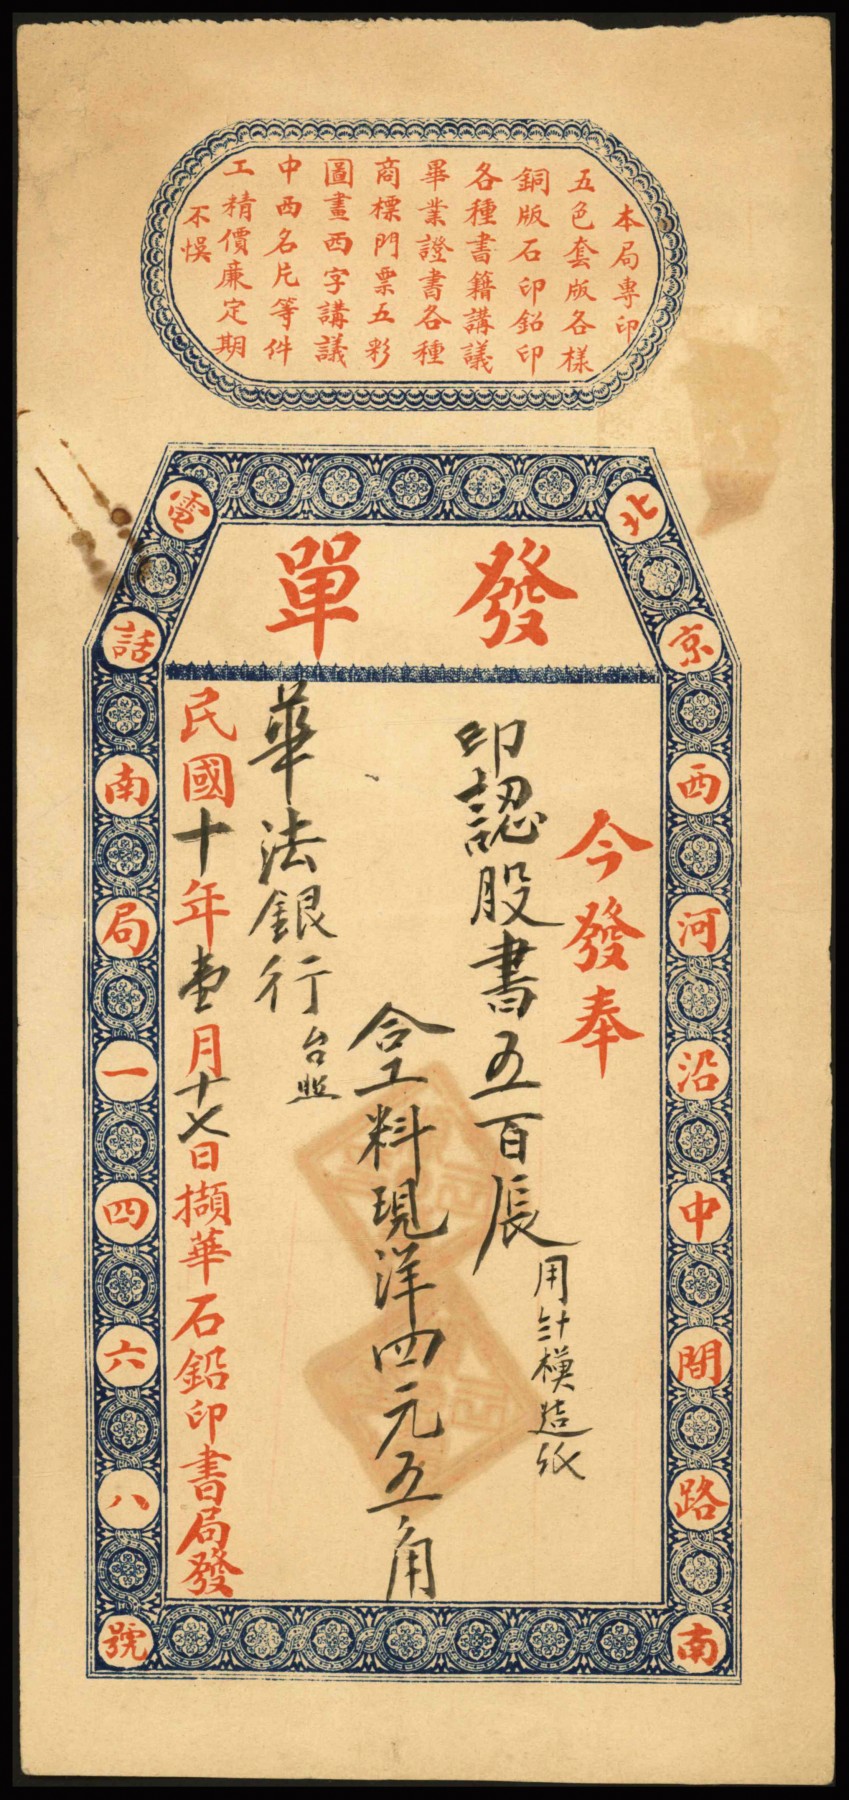 本局專印
五色套版各樣
銅版石印鉛印
各種書籍講議
畢業證書各種
商標門票五彩
圖畫西字講議
中西名片等件
工精價廉定期
不悞
發單
北京西河沿中間路南
電話南局一四六八號
今發奉
印認股書五百張
用計模造紙
合工料現洋四元五角
華法銀行
台照
民國十年壹月十七日擷華石鉛印書局發